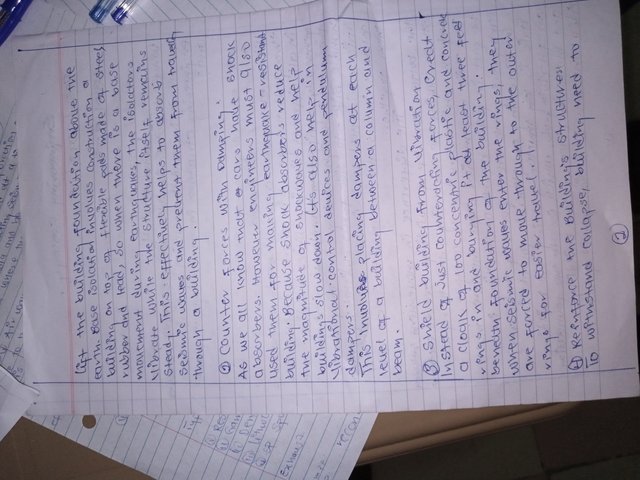 Lift the building foundation above the
earth Base isolation involves construction a
building on top of flexible pads made of steel
rubber and lead. So when there is a base
movement during earthquakes, the isolators
vibrate while the structure itself remains
steady. This effectively helps to absorb
seismic waves and prevent them from travel
through a building
② Counter forces with Damping:
As we all know that cars have shock
absorbers. However engineers must also
used them for making earthquake-resistant
building. Because shock absorbers reduce
the magnitude of shockwaves and help
buildings slow down. Its also help in
vibrational control devices and pendulum
dampers.
This involves placing dampers at each
level of a building between a column and
beam.
③ Shield building from vibration
Instead of just counteracting forces, creat
a cloak of 100 concentric plastic and concrete
rings in and burying it at least three feet
beneath foundation of the building.
when seismic waves enter the rings, they
are forced to move through to the outer
rings for easier travel.
④ Reinforce the Building's structures:
To withstand collapse, building need to
②